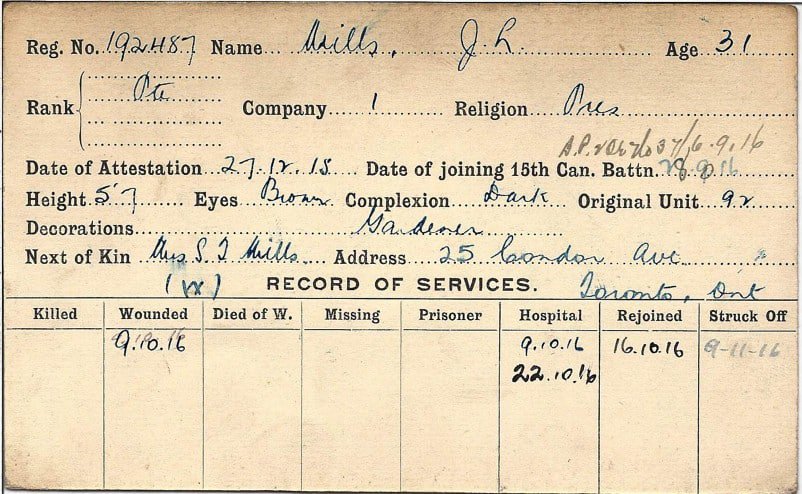 Reg. No. 192487 Name Mills, J. L. Age 31
Rank Pte Company 1 Religion Pres
16.9.16
Date of Attestation 27.12.15 Date of joining 15th Can. Battn. 28.9.16
Height 5'7 Eyes Brown Complexion Dark Original Unit 92
Decorations Gardener
Next of Kin Mrs S. J Mills Address 25 Condor Ave
(W) RECORD OF SERVICES. Toronto, Ont
Killed Wounded Died of W. Missing Prisoner Hospital Rejoined Struck Off
9.10.16 9.10.16 16.10.16 9-11-16
22.10.16